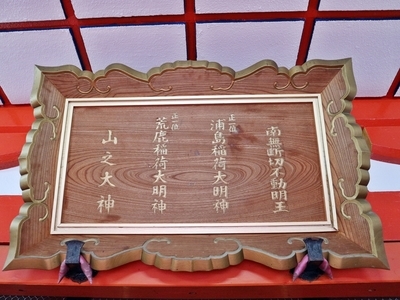 南無断切不動明王
正一位
浦島稲荷大明神
正一位
荒鹿稲荷大明神
山之大神